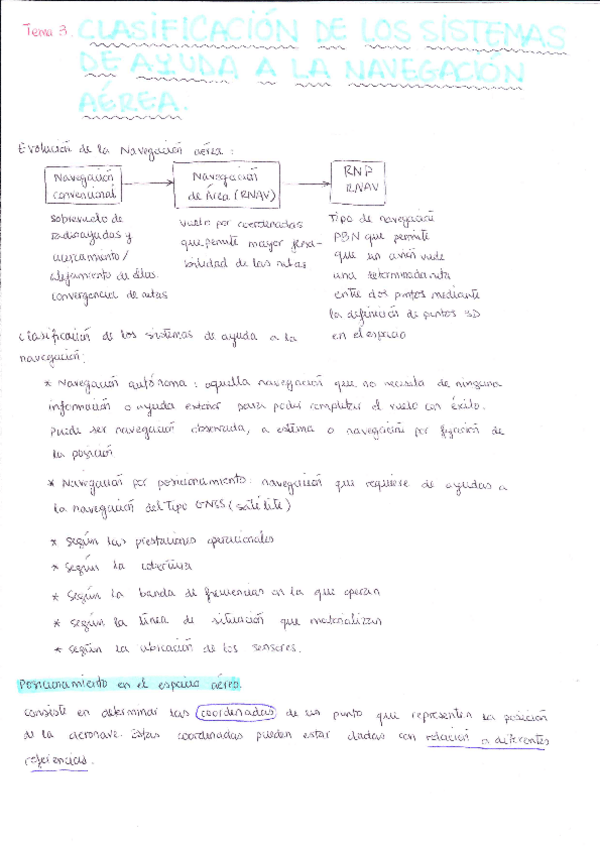 Tema 3. CLASIFICACIÓN DE LOS SISTEMAS
DE AYUDA A LA NAVEGACIÓN
AÉREA.
Evolución de la Navegación aérea:
Navegación
convencional
Navegación
de Área (RNAV)
RNP
RNAV
sobrevuelo de
radioayudas y
acercamiento/
alejamiento de ellas.
convergencia de rutas
vuelo por coordenadas
que permite mayor flexi-
bilidad de las rutas
Tipo de navegación
PBN que permite
que un avión vuele
una determinada ruta
entre dos puntos mediante
la definición de puntos 3D
en el espacio
Clasificación de los sistemas de ayuda a la
navegación:
* Navegación autónoma: aquella navegación que no necesita de ninguna
información o ayuda exterior para poder completar el vuelo con éxito.
Puede ser navegación observada, a estima o navegación por fijación de
la posición
* Navegación por posicionamiento: navegación que requiere de ayudas a
la navegación del tipo GNSS (satélite)
* según las prestaciones operacionales
* según la cobertura
* según la banda de frecuencias en la que operan
* según la línea de situación que materializan
* según la ubicación de los sensores.
Posicionamiento en el espacio aéreo.
consiste en determinar las coordenadas de un punto que representen la posición
de la aeronave. Estas coordenadas pueden estar dadas con relación a diferentes
referencias.